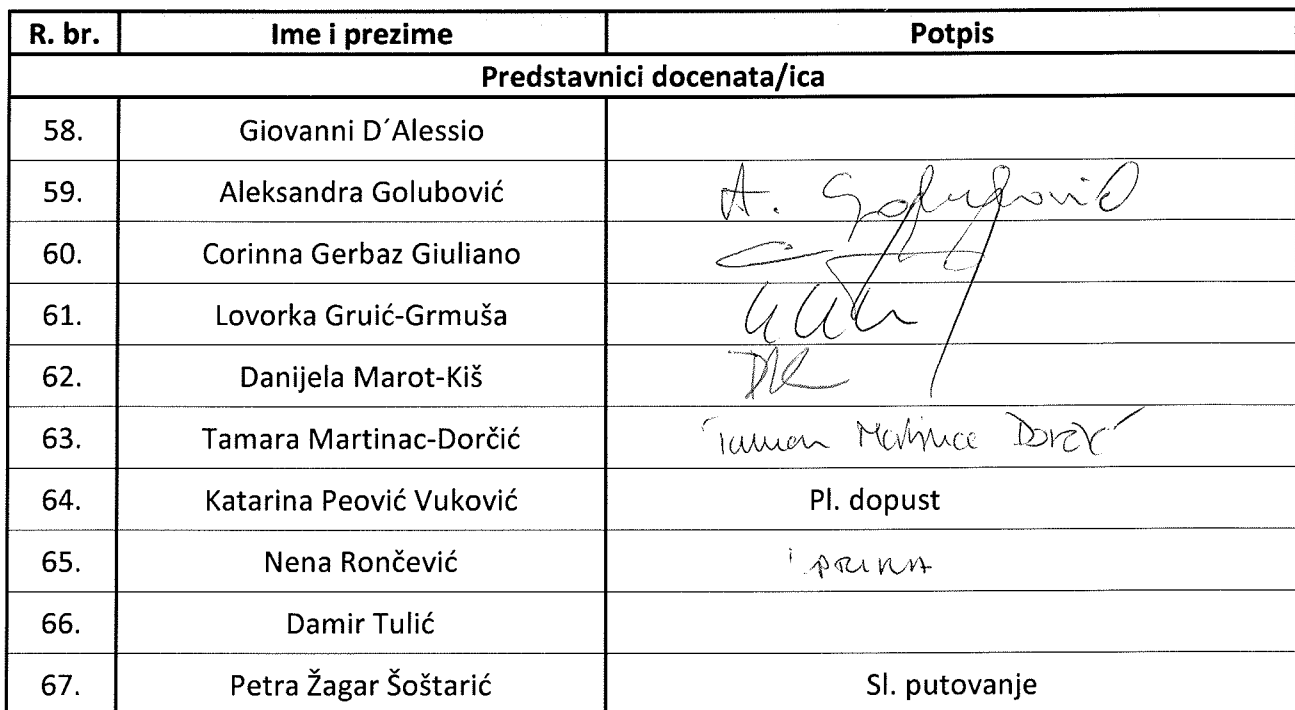 R. br. Ime i prezime Potpis
Predstavnici docenata/ica
58. Giovanni D´Alessio
59. Aleksandra Golubović A. Golubović
60. Corinna Gerbaz Giuliano
61. Lovorka Gruić-Grmuša
62. Danijela Marot-Kiš
63. Tamara Martinac-Dorčić Tamara Martinac Dorčić
64. Katarina Peović Vuković Pl. dopust
65. Nena Rončević
66. Damir Tulić
67. Petra Žagar Šoštarić Sl. putovanje